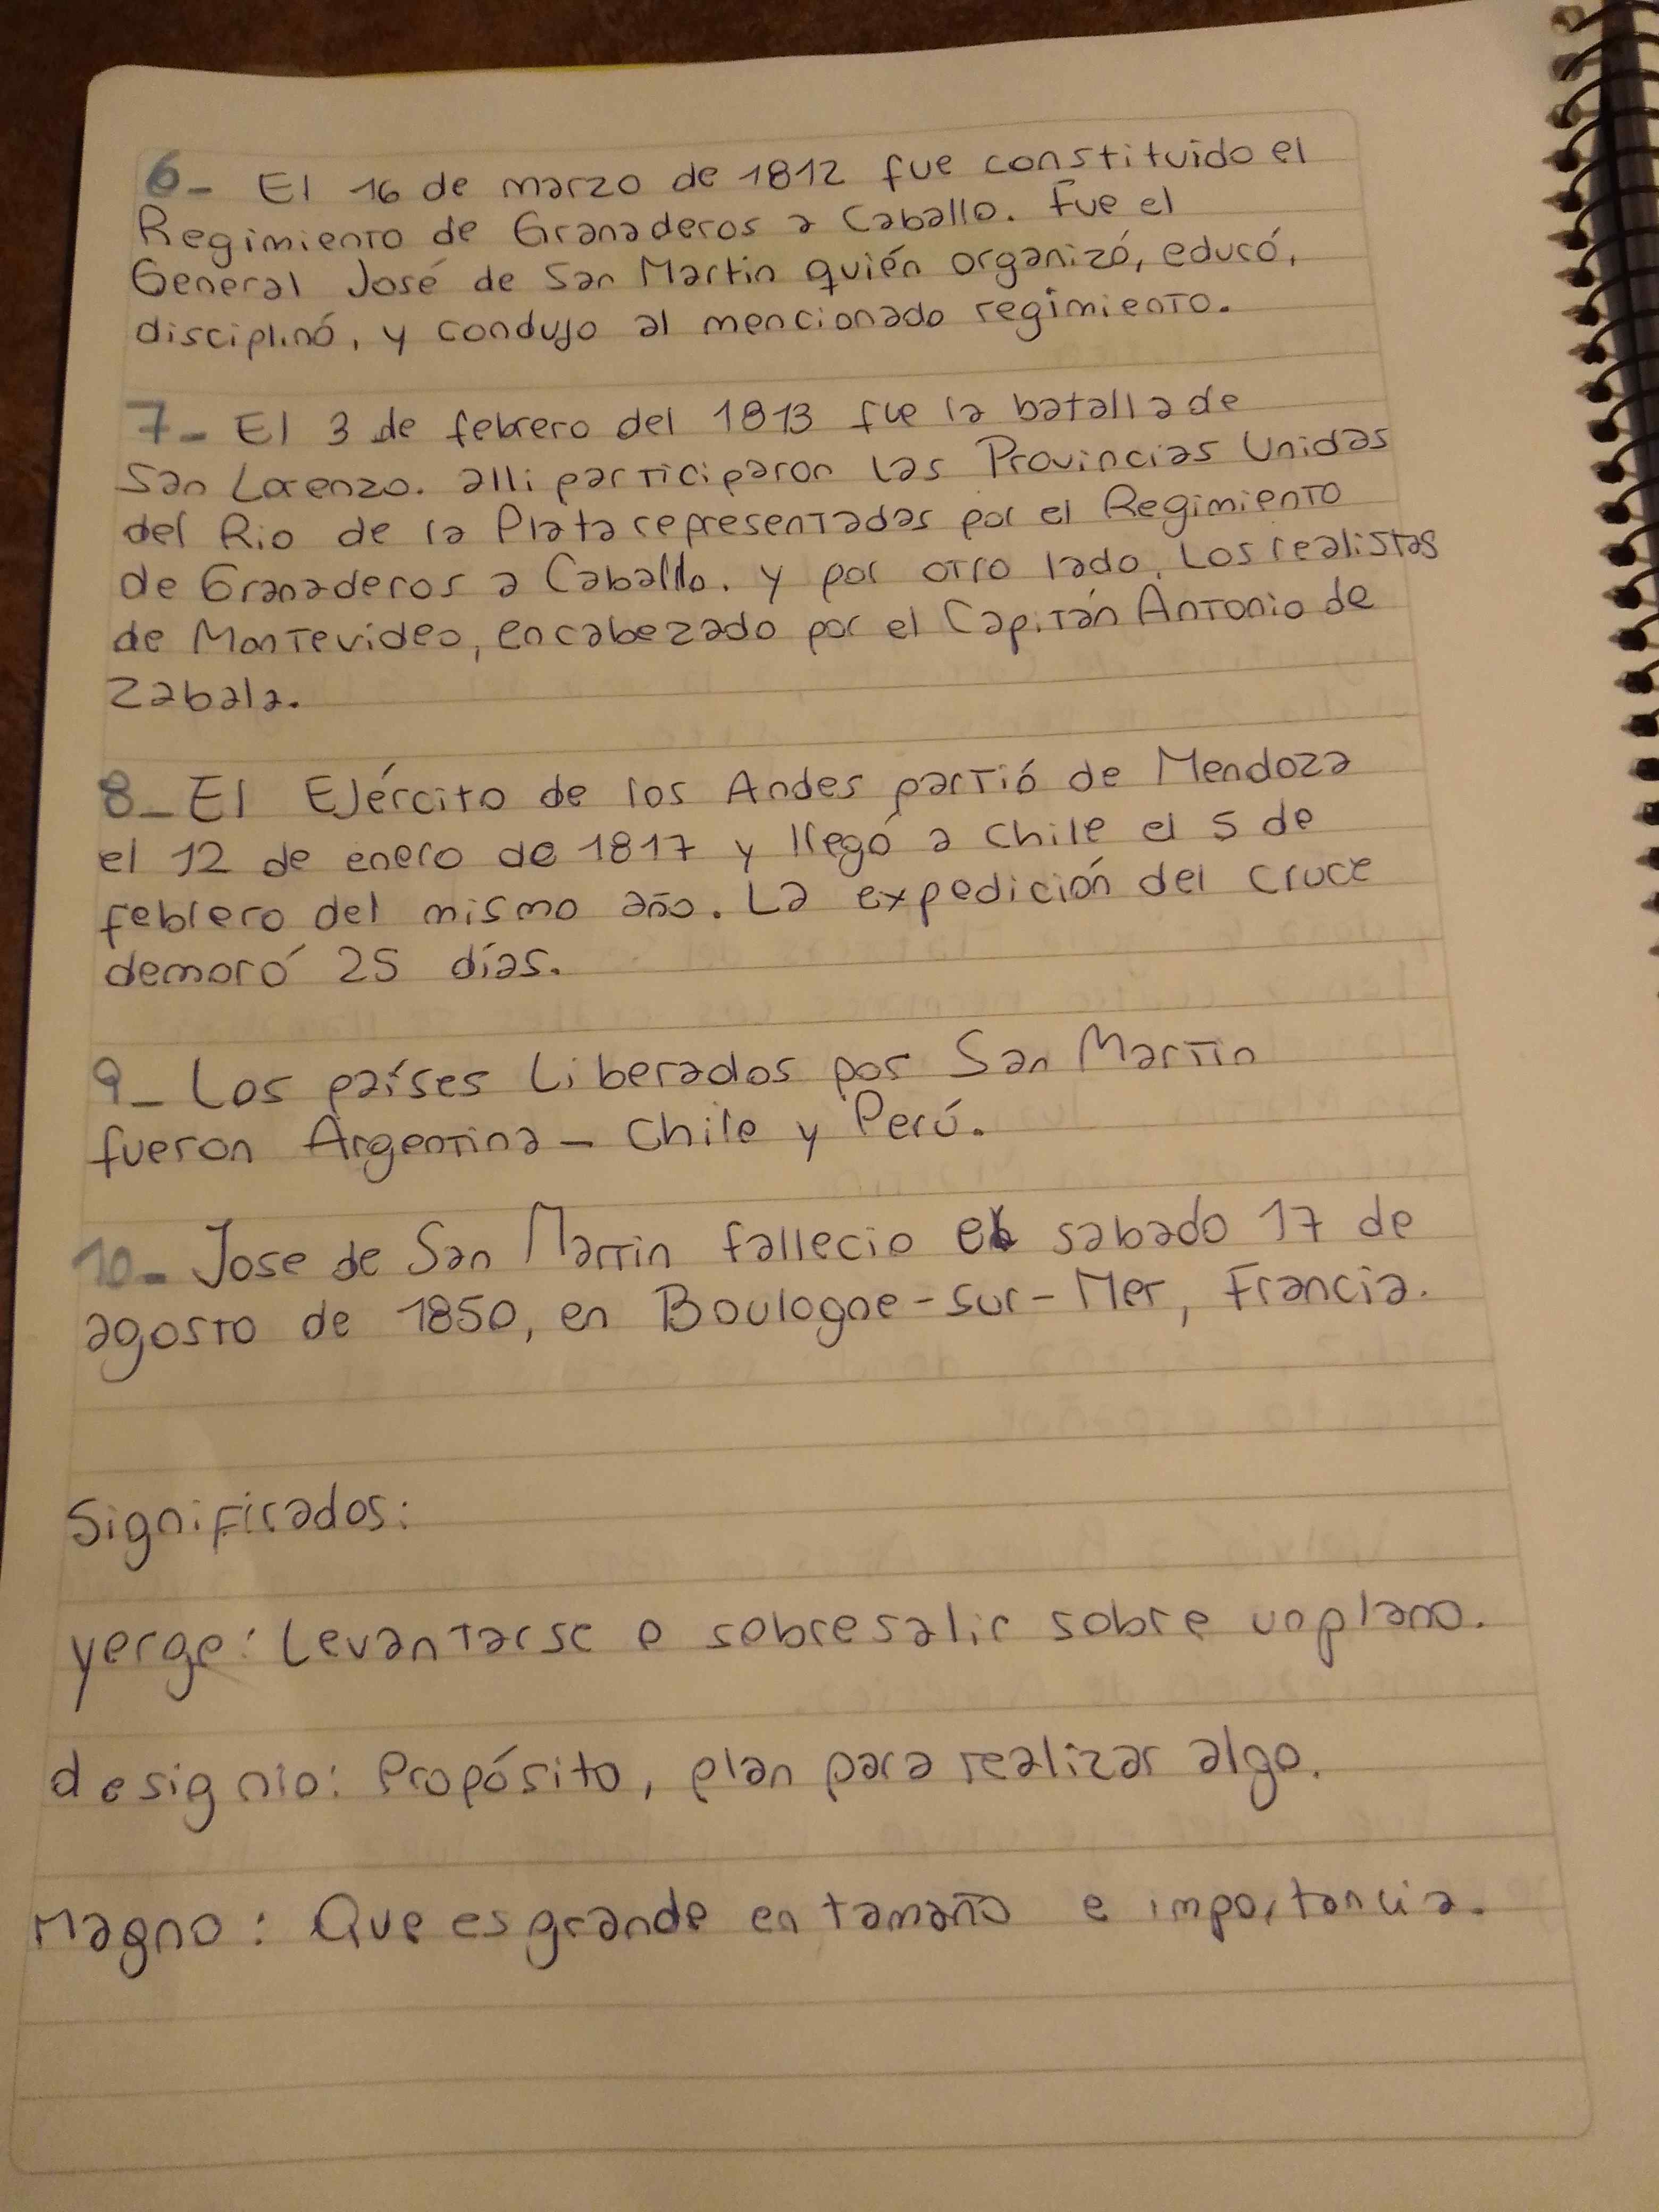 6- El 16 de marzo de 1812 fue constituido el
Regimiento de Granaderos a Caballo. Fue el
General José de San Martin quién organizó, educó,
disciplinó, y condujo al mencionado regimiento.
7- El 3 de febrero del 1813 fue la batalla de
San Lorenzo. alli participaron las Provincias Unidas
del Rio de la Plata representadas por el Regimiento
de Granaderos a Caballo. y por otro lado, Los realistas
de Montevideo, encabezado por el Capitán Antonio de
Zabala.
8- El Ejército de los Andes partió de Mendoza
el 12 de enero de 1817 y llegó a Chile el 5 de
febrero del mismo año. La expedición del cruce
demoró 25 días.
9- Los países Liberados por San Martin
fueron Argentina - Chile y Perú.
10- Jose de San Martin fallecio el sabado 17 de
agosto de 1850, en Boulogne-sur-Mer, Francia.
Significados:
yerge: Levantarse o sobresalir sobre un plano.
designio: Propósito, plan para realizar algo.
Magno: Que es grande en tamaño e importancia.